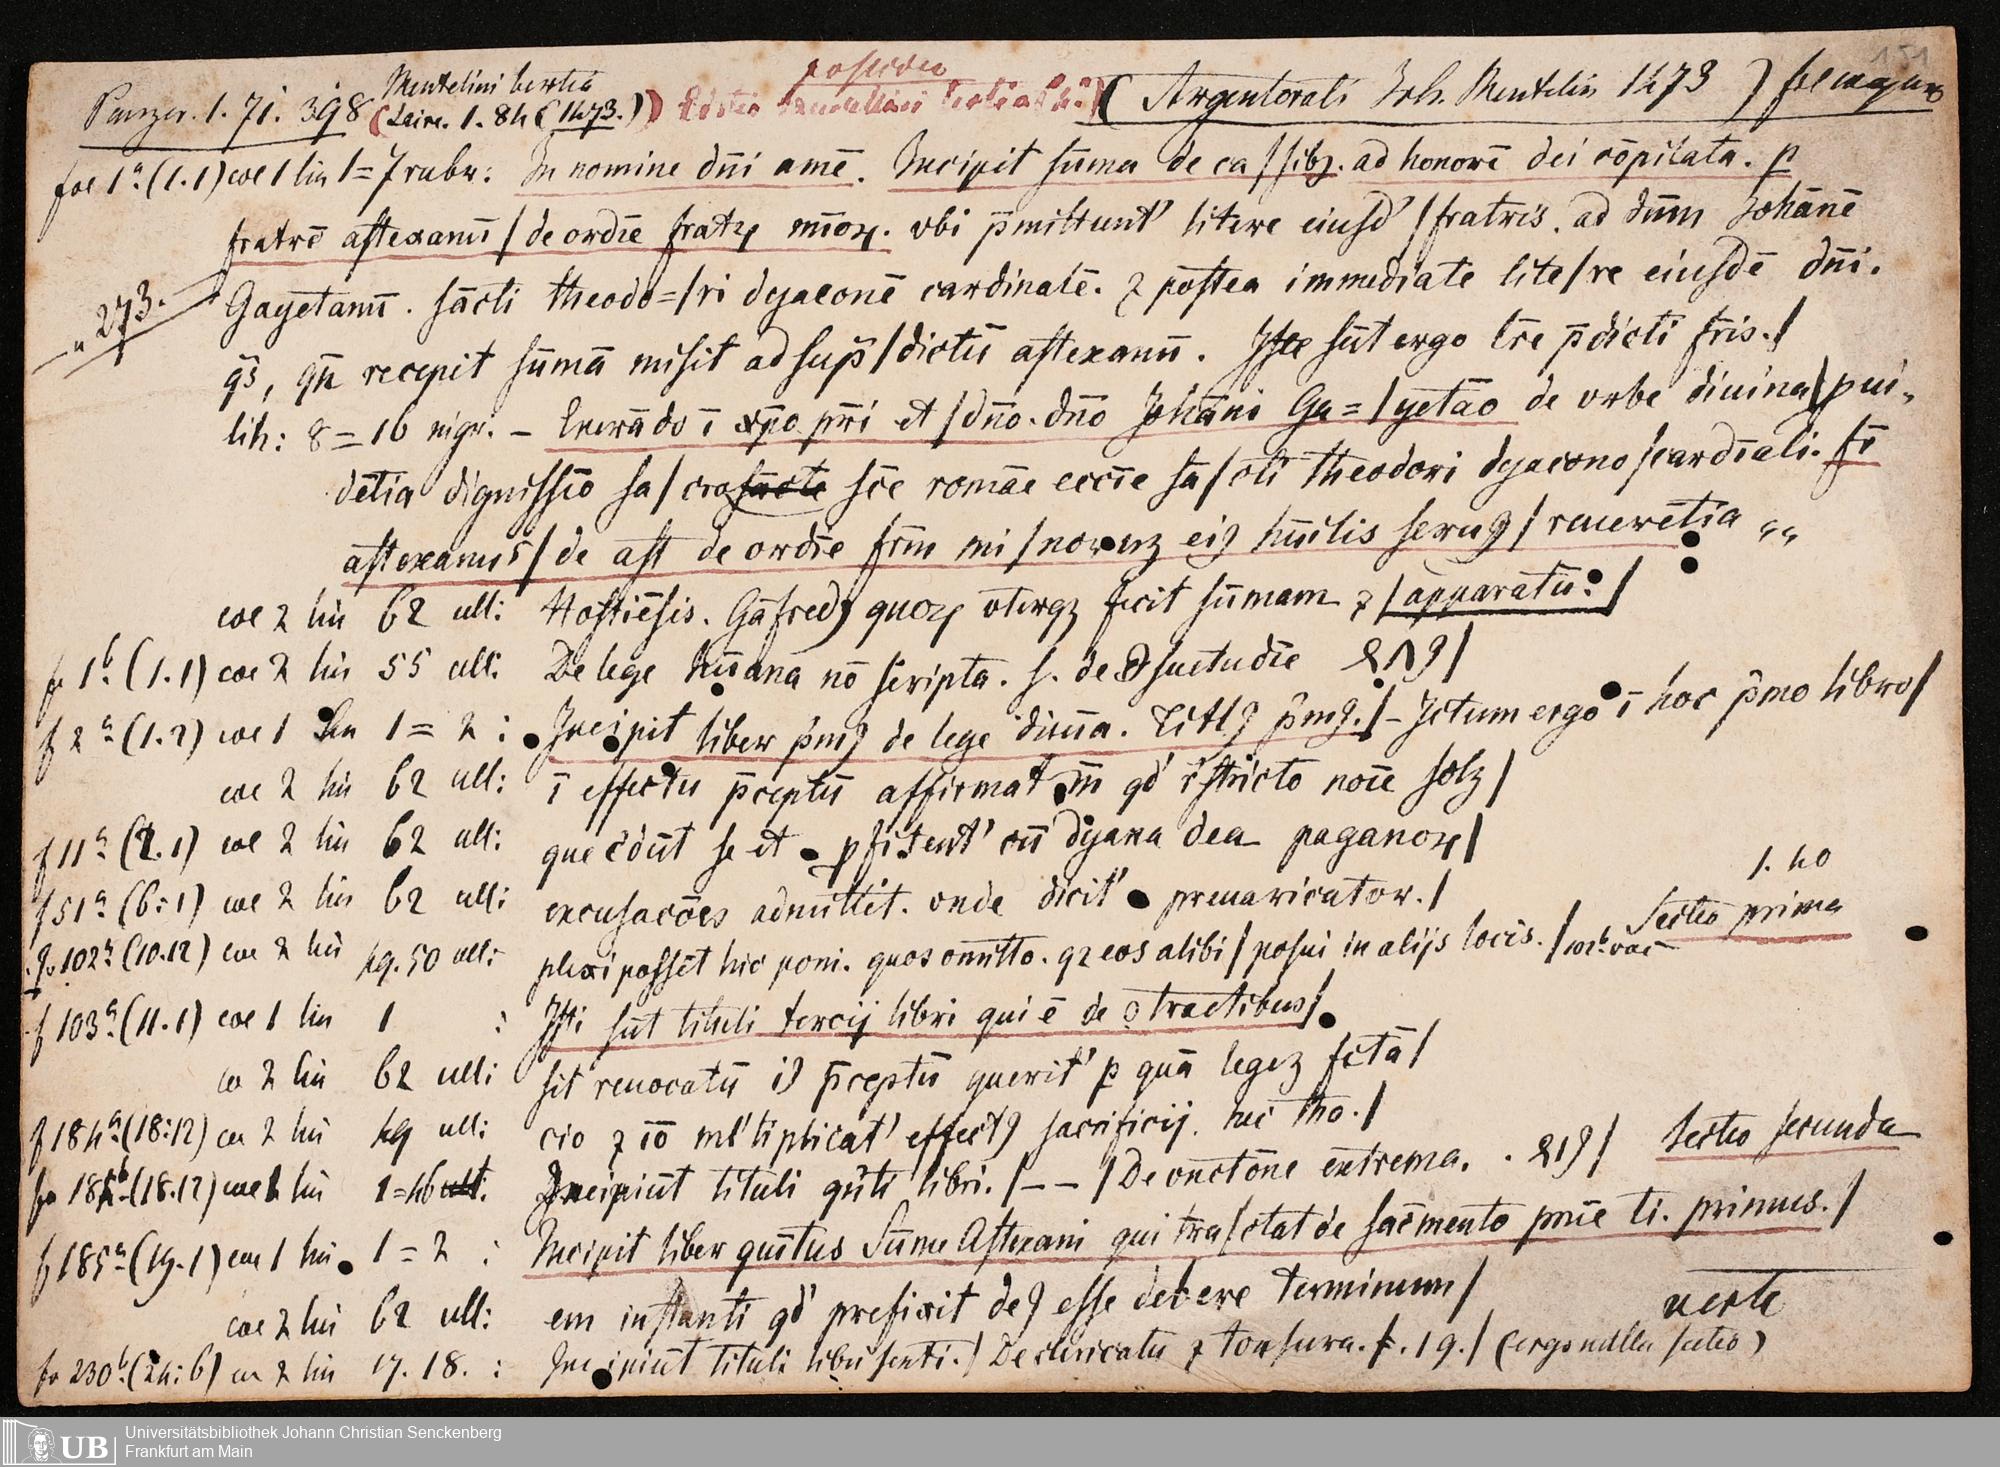 151
Mentelini tertia
posterior
Panzer. 1. 71. 398 (Laire. 1. 84 (1473.)) Editio Mentelini tertia (Argentorati Joh. Mentelin 1473) fol
fol 1ᵃ (1.1) col 1 lin 1=7 rubr: In nomine dn̄i amē. Incipit sūma de ca/sibꝫ. ad honorē dei cōpilata. ꝑ
fratrē astexanū / de ordīe fratꝝ mīoꝝ. vbi p̄mittunt' litere eiusd' / fratris. ad dn̄m Johānē
„ 273.
Gayetanū. sācti theodo=/ri dyaconē cardinalē. ⁊ postea immediate lite/re eiusdē dn̄i.
qs̄, qn̄ recepit sūmā misit ad sup̄/dictū astexanū. Iste sūt ergo lr̄e p̄dicti fr̄is./
lin: 8=16 nigr. – Inerādo ī xp̄o pr̄i et / dn̄o. dn̄o Johāni Ga=/yetāo de vrbe diuina / pui-
dētia dignissīo sa/cro sc̄e romāe eccīe sā/cti theodori dyacono / cardīali. fr̄
astexanus / de ast de ordīe frm̄ mi/norum eiꝰ hūilis seruꝰ / reuerētia „„
col 2 lin 62 ult: Hostiēsis. Gāfredꝰ quoꝝ vterqꝫ fecit sūmam ⁊ / apparatū: /
f 1ᵇ (1.1) col 2 lin 55 ult: De lege hūana nō scripta. s. de ꝯsuetudīe
f 2ᵃ (1.2) col 1 lin 1=2 : Incipit liber p̄mꝰ de lege diuīa. Titlꝰ p̄mꝰ. / – Ictum ergo ī hoc p̄mo libro /
col 2 lin 62 ult: ī effectu p̄ceptū affirmat qd' stricto noīe solꝫ /
f 11ᵃ (2.1) col 2 lin 62 ult: que c̄dūt se et ꝓfitent' cū dyana dea paganoꝝ /
f 51ᵃ (6.1) col 2 lin 62 ult: excusacōes admittit. vnde dicit' preuaricator. /
1. 40
f. 102ᵃ (10.12) col 2 lin 49. 50 ult: plexi possēt hic poni. quos omitto. qꝛ eos alibi / posui in alijs locis. / 102ᵇ vac Sectio prima
f 103ᵃ (11.1) col 1 lin 1 : Isti sūt tituli tercij libri qui ē de ꝯtractibus /
co 2 lin 62 ult: sit reuocatū id p̄ceptū querit' ꝑ quā legeꝫ fctā /
f 184ᵃ (18.12) col 2 lin 49 ult: cio ⁊ iō ml'tiplicat' effectꝰ sacrificij. hec tho. /
fo 184ᵇ (18.12) col lin 1=46 ult: Incipiūt tituli qūti libri. / – – / De vnctōne extrema. / Sectio secunda
f 185ᵃ (19.1) col 1 lin 1=2 : Incipit liber quītus Sūme Astexani qui tra/ctat de sacr̄mento pnīe ti. primus. /
col 2 lin 62 ult: em instanti qd' prefixit deꝰ esse debere terminum /
verte
fo 230ᵇ (24.6) co 2 lin 17. 18. : Incipiūt tituli libri sexti. / De clericatu ⁊ tonsura. f. 19. / (ergo nulla sectio)
UB
Universitätsbibliothek Johann Christian Senckenberg
Frankfurt am Main